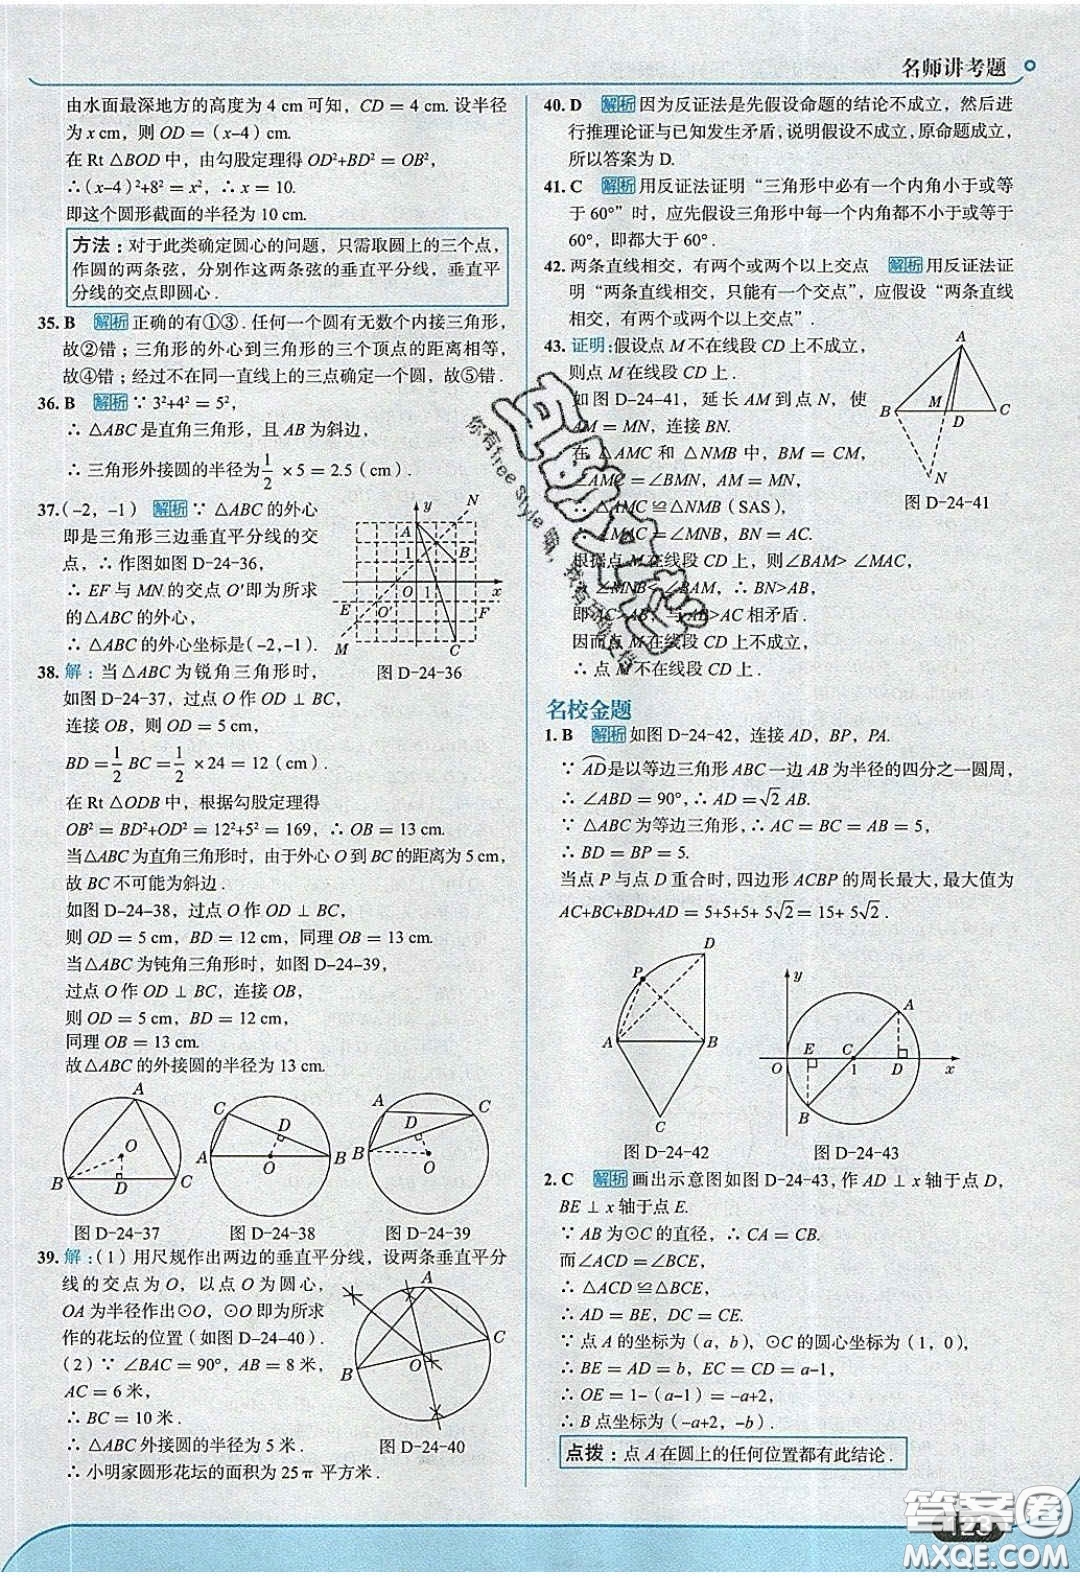 名师讲考题
由水面最深地方的高度为 4 cm 可知，CD = 4 cm. 设半径
为 x cm，则 OD =（x–4）cm.
在 Rt △BOD 中，由勾股定理得 OD²+BD² = OB²，
∴（x–4）²+8² = x²，∴ x = 10.
即这个圆形截面的半径为 10 cm.
方法：对于此类确定圆心的问题，只需取圆上的三个点，
作圆的两条弦，分别作这两条弦的垂直平分线，垂直平
分线的交点即圆心．
35. B 解析 正确的有①③．任何一个圆有无数个内接三角形，
故②错；三角形的外心到三角形的三个顶点的距离相等，
故④错；经过不在同一直线上的三点确定一个圆，故⑤错．
36. B 解析 ∵ 3²+4² = 5²，
∴ △ABC 是直角三角形，且 AB 为斜边，
∴ 三角形外接圆的半径为 1/2 ×5 = 2.5（cm）.
37.（–2，–1） 解析 ∵ △ABC 的外心
即是三角形三边垂直平分线的交
点，∴ 作图如图 D-24-36，
∴ EF 与 MN 的交点 O′即为所求
的△ABC 的外心，
∴ △ABC 的外心坐标是（–2，–1）.
y N A 1 B E O′ O 1 F x M C
图 D-24-36
38. 解：当△ABC 为锐角三角形时，
如图 D-24-37，过点 O 作 OD ⊥ BC，
连接 OB，则 OD = 5 cm，
BD = 1/2 BC = 1/2 ×24 = 12（cm）.
在 Rt △ODB 中，根据勾股定理得
OB² = BD²+OD² = 12²+5² = 169，∴ OB = 13 cm.
当△ABC 为直角三角形时，由于外心 O 到 BC 的距离为 5 cm，
故 BC 不可能为斜边．
如图 D-24-38，过点 O 作 OD ⊥ BC，
则 OD = 5 cm，BD = 12 cm，同理 OB = 13 cm.
当△ABC 为钝角三角形时，如图 D-24-39，
过点 O 作 OD ⊥ BC，连接 OB，
则 OD = 5 cm，BD = 12 cm，
同理 OB = 13 cm.
故△ABC 的外接圆的半径为 13 cm.
A O B D C
C D A O B
A C D B O
图 D-24-37 图 D-24-38 图 D-24-39
39. 解：（1）用尺规作出两边的垂直平分线，设两条垂直平分
线的交点为 O，以点 O 为圆心，
OA 为半径作出⊙O，⊙O 即为所求
作的花坛的位置（如图 D-24-40）.
（2）∵ ∠BAC = 90°，AB = 8 米，
AC = 6 米，
∴ BC = 10 米．
∴ △ABC 外接圆的半径为 5 米．
∴ 小明家圆形花坛的面积为 25π 平方米．
A C O B
图 D-24-40
40. D 解析 因为反证法是先假设命题的结论不成立，然后进
行推理论证与已知发生矛盾，说明假设不成立，原命题成立，
所以答案为 D.
41. C 解析 用反证法证明“三角形中必有一个内角小于或等
于 60°”时，应先假设三角形中每一个内角都不小于或等于
60°，即都大于 60°．
42. 两条直线相交，有两个或两个以上交点 解析 用反证法证
明“两条直线相交，只能有一个交点”，应假设“两条直线
相交，有两个或两个以上交点”．
43. 证明：假设点 M 不在线段 CD 上不成立，
则点 M 在线段 CD 上．
如图 D-24-41，延长 AM 到点 N，使
AM = MN，连接 BN.
在 △AMC 和 △NMB 中，BM = CM，
∠AMC = ∠BMN，AM = MN，
∴ △AMC ≌△NMB（SAS），
∴ ∠MAC = ∠MNB，BN = AC.
根据点 M 在线段 CD 上，则 ∠BAM> ∠MAC，
∴ ∠MNB< ∠BAM，∴ BN>AB，
即 AC>AB，与 AB>AC 相矛盾．
因而点 M 在线段 CD 上不成立，
∴ 点 M 不在线段 CD 上．
A B M D C N
图 D-24-41
名校金题
1. B 解析 如图 D-24-42，连接 AD，BP，PA.
∵ AD是以等边三角形 ABC 一边 AB 为半径的四分之一圆周，
∴ ∠ABD = 90°，∴ AD=√2 AB.
∵ △ABC 为等边三角形，∴ AC = BC = AB = 5，
∴ BD = BP = 5.
当点 P 与点 D 重合时，四边形 ACBP 的周长最大，最大值为
AC+BC+BD+AD = 5+5+5+ 5√2 = 15+ 5√2 .
D P A B C
y A E C O 1 D x B
图 D-24-42 图 D-24-43
2. C 解析 画出示意图如图 D-24-43，作 AD ⊥ x 轴于点 D，
BE ⊥ x 轴于点 E.
∵ AB 为⊙C 的直径，∴ CA = CB.
而∠ACD = ∠BCE，
∴ △ACD ≌△BCE，
∴ AD = BE，DC = CE.
∵ 点 A 的坐标为（a，b），⊙C 的圆心坐标为（1，0），
∴ BE = AD = b，EC = CD = a–1，
∴ OE = 1–（a–1）= –a+2，
∴ B 点坐标为（–a+2，–b）.
点拨：点 A 在圆上的任何位置都有此结论．
123
答案圈
MXQE.COM